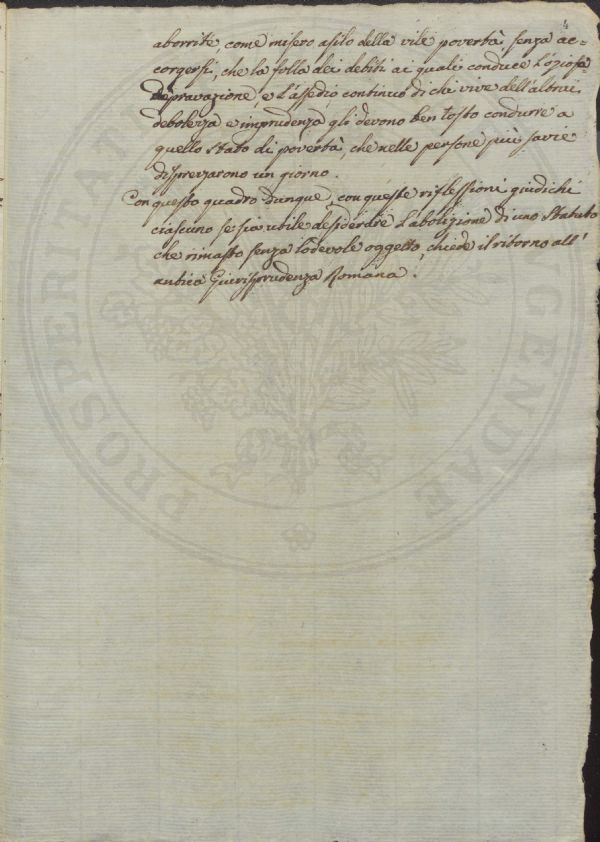 4
aborrite, come misero asilo della vile povertà senza ac=
corgersi, che la folla dei debiti ai quali conduce l'oziosa
depravazione, e l'assedio continuo di chi vive dell'altrui
debolezza e imprudenza gli devono ben tosto condurre a
quello stato di povertà, che nelle persone più savie
disprezzarono un giorno.
Con questo quadro dunque, con queste riflessioni giudichi
ciascuno se sia utile desiderare l'abolizione di uno Statuto
che rimasto senza lodevole oggetto, chiede il ritorno all'
antica Giurisprudenza Romana.
PROSPE
GENDAE